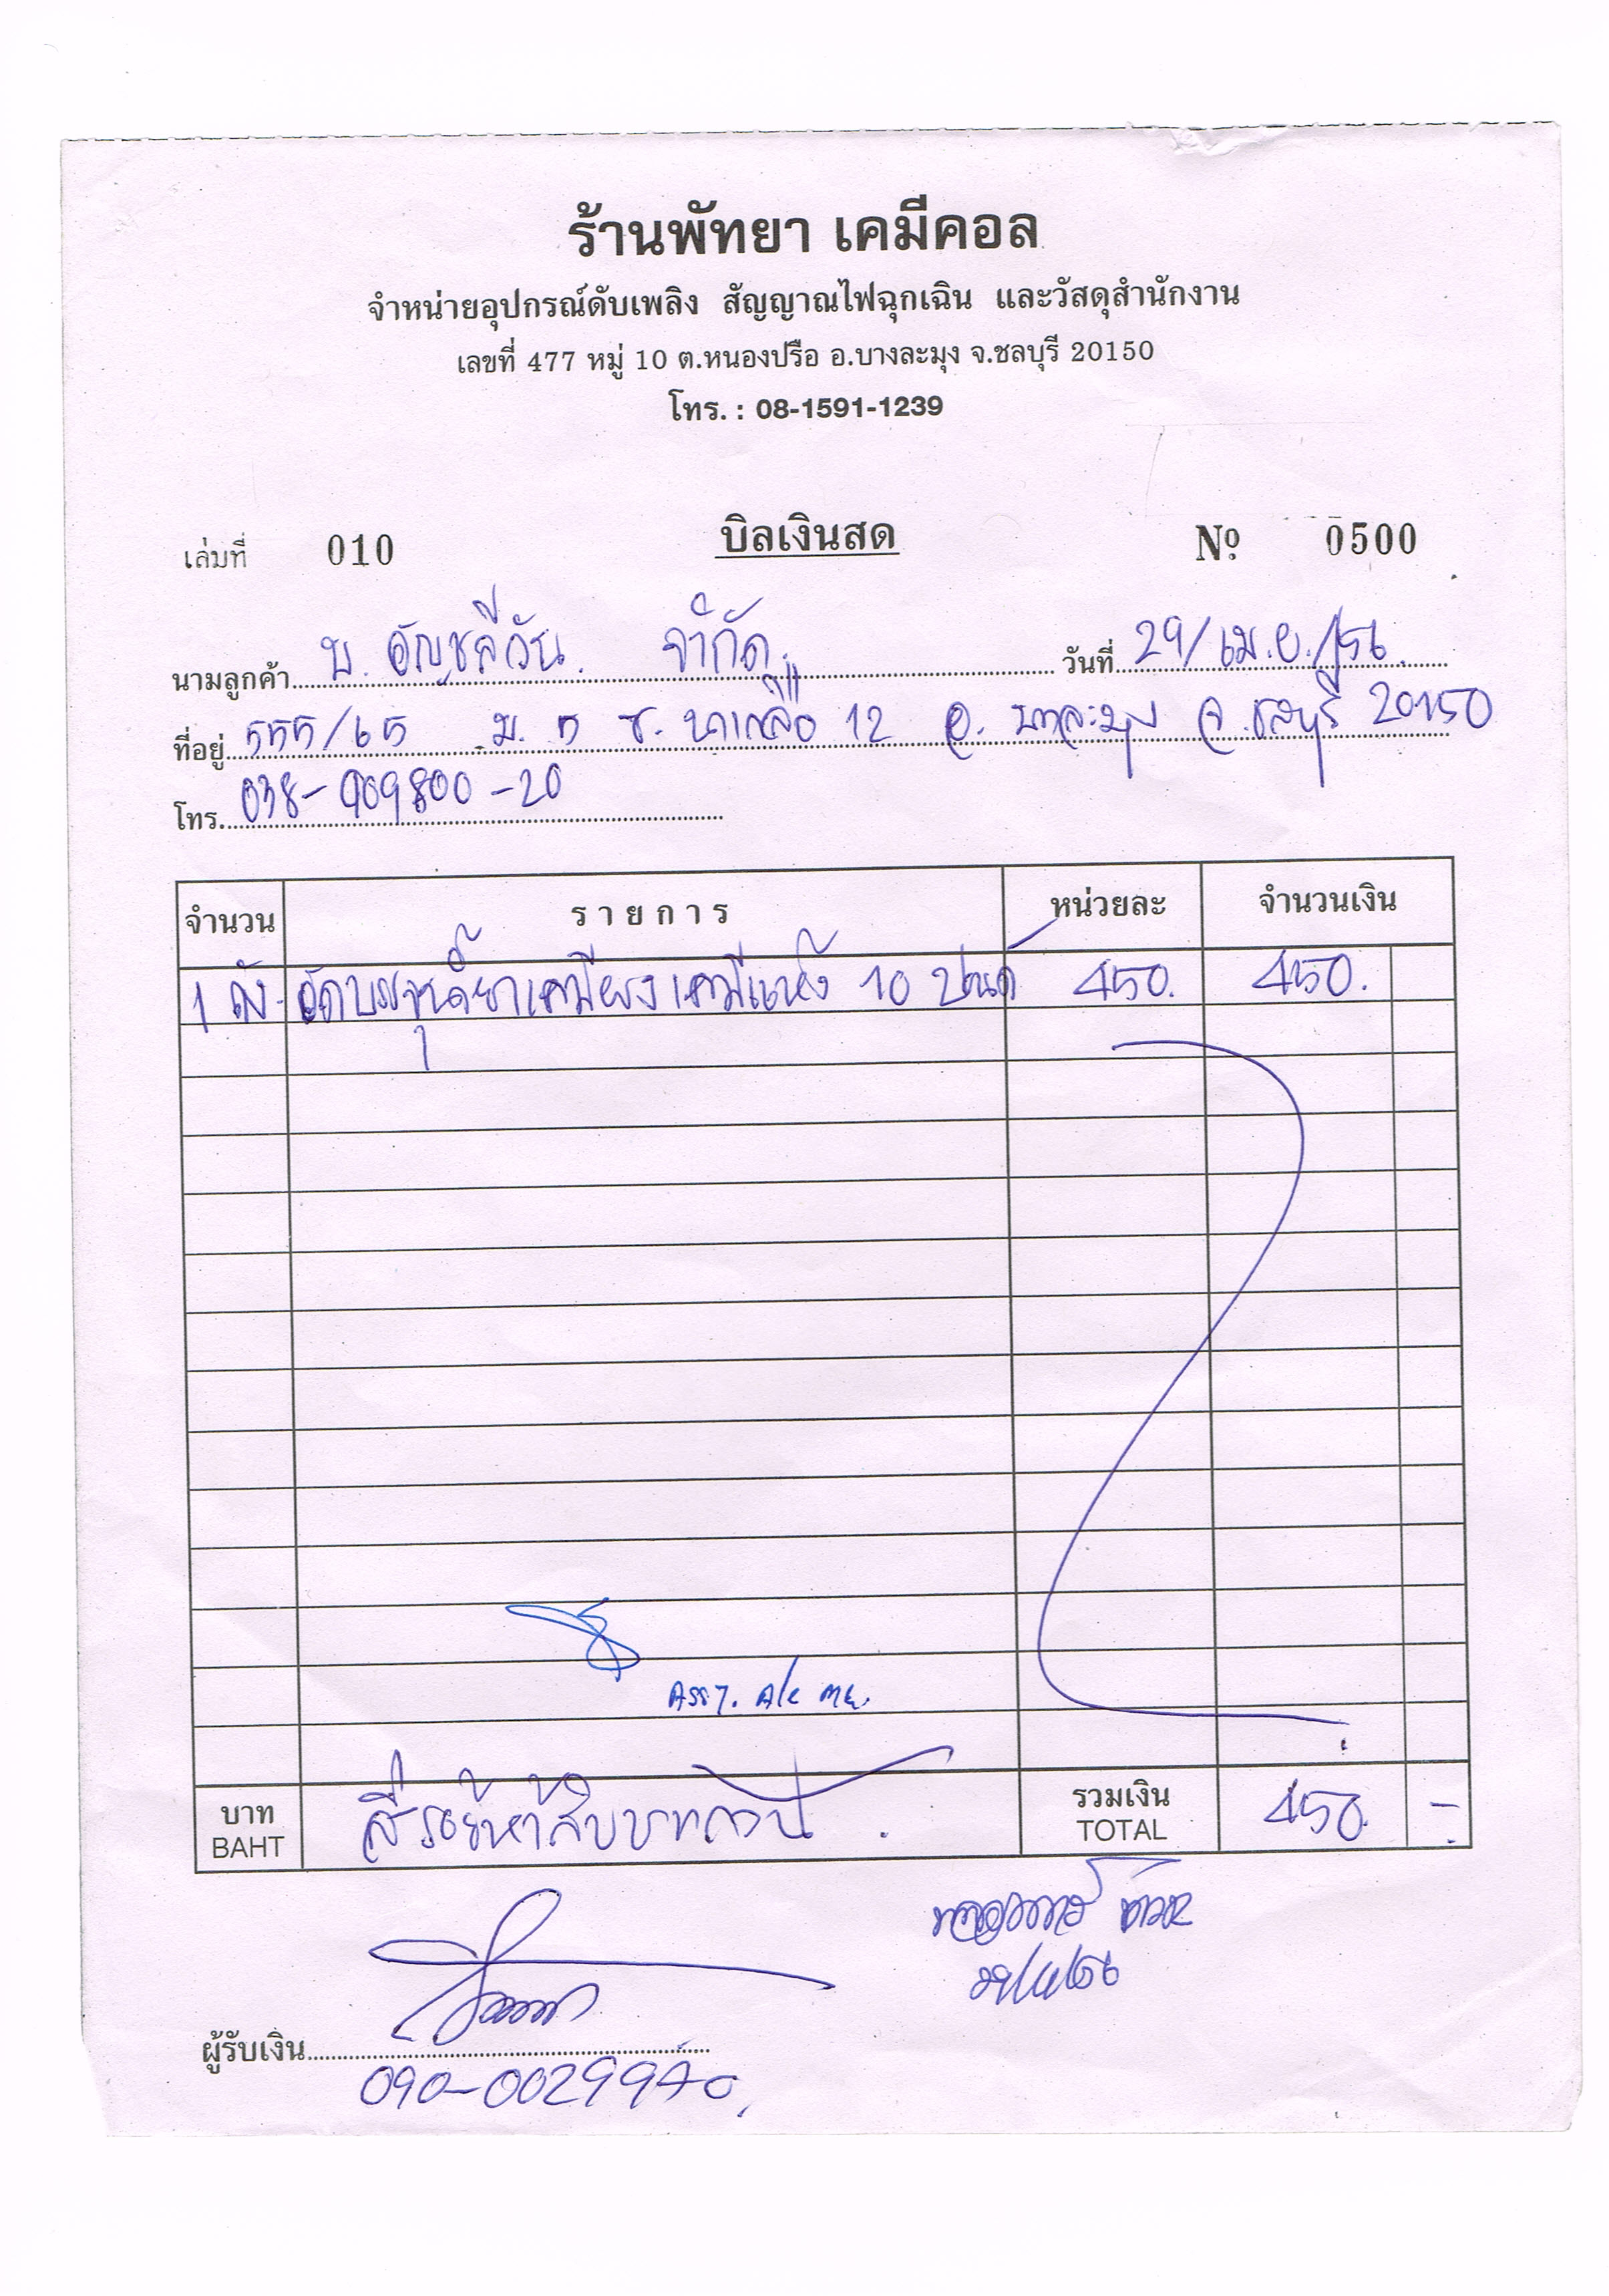 ร้านพัทยา เคมีคอล
จำหน่ายอุปกรณ์ดับเพลิง สัญญาณไฟฉุกเฉิน และวัสดุสำนักงาน
เลขที่ 477 หมู่ 10 ต.หนองปรือ อ.บางละมุง จ.ชลบุรี 20150
โทร. : 08-1591-1239
เล่มที่ 010 บิลเงินสด Nº 0500
นามลูกค้า บ. อัญชลีวัน จำกัด. วันที่ 29/เม.ย./56
ที่อยู่ 555/65 ม. 5 ซ. นาเกลือ 12 อ. บางละมุง จ. ชลบุรี 20150
โทร. 038-909800-20
จำนวน รายการ หน่วยละ จำนวนเงิน
1 ถัง อัดบรรจุน้ำยาเคมีผงเคมีแห้ง 10 ปอนด์ 450. 450.
บาท สี่ร้อยห้าสิบบาทถ้วน. รวมเงิน 450. -
BAHT TOTAL
29/4/56
ผู้รับเงิน